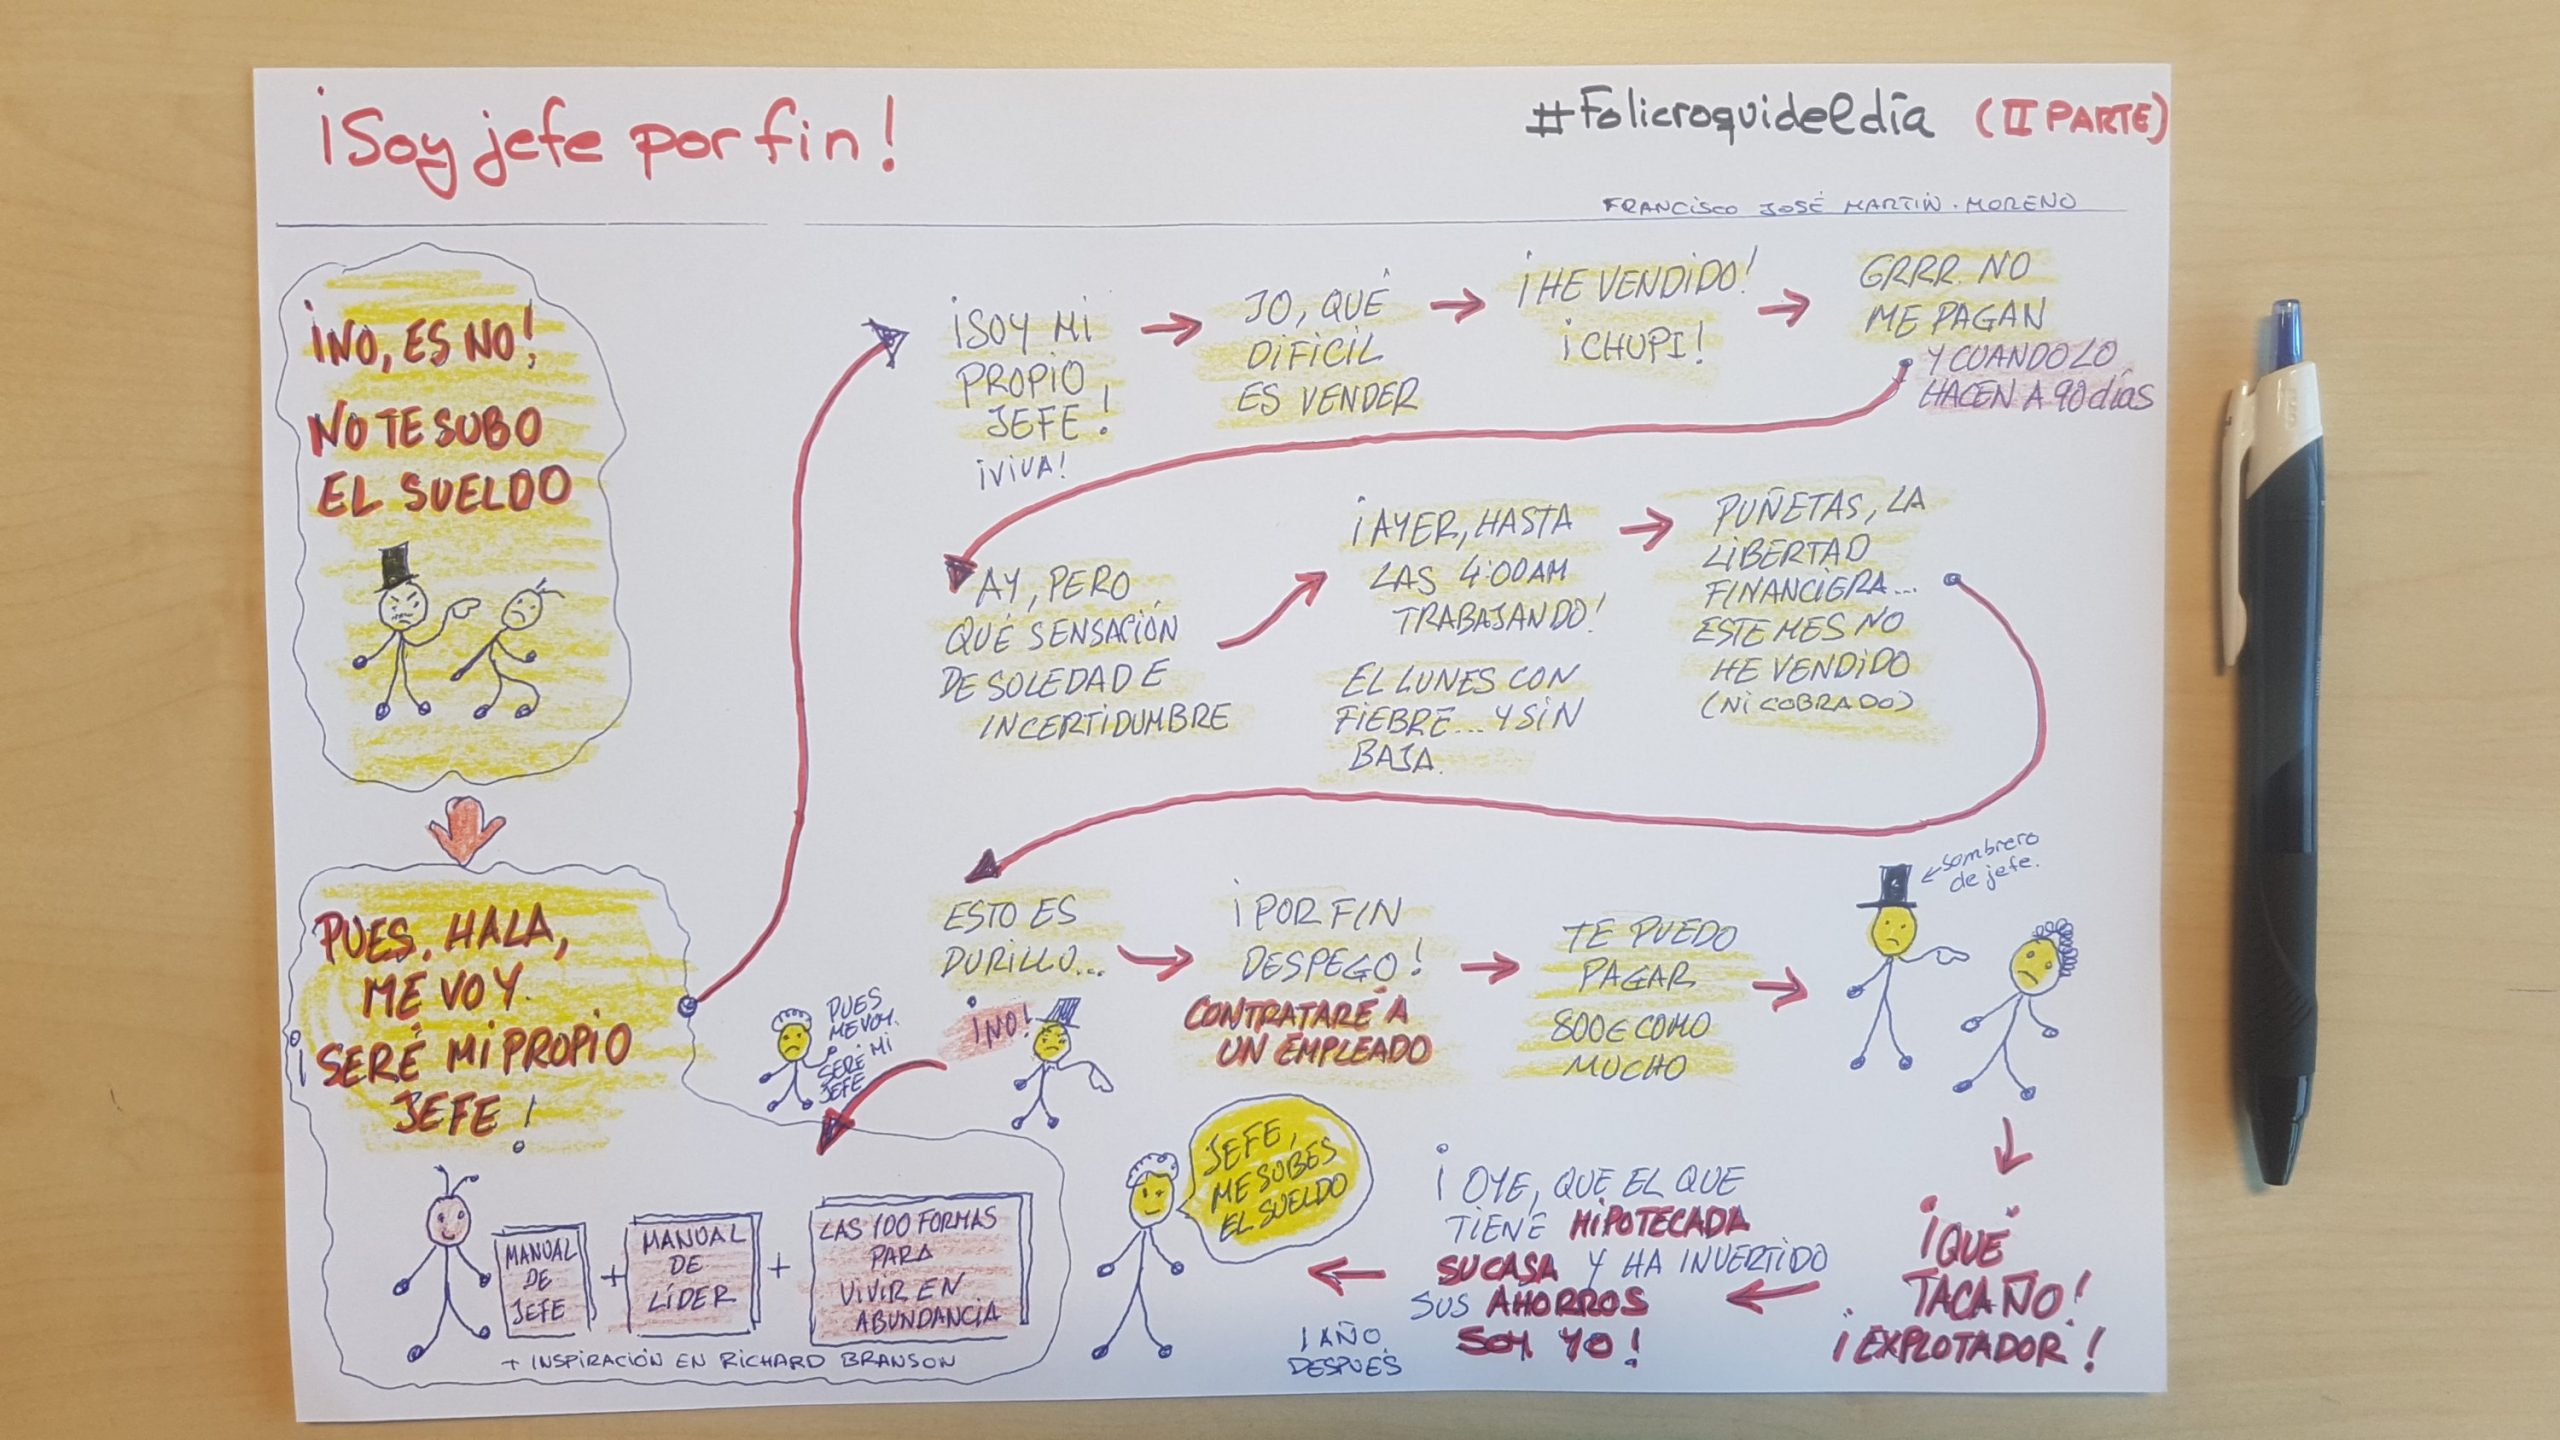 ¡Soy jefe por fin!
#Folicroquideldía (II PARTE)
FRANCISCO JOSÉ MARTÍN-MORENO
¡NO, ES NO!
NO TE SUBO
EL SUELDO
PUES. HALA,
ME VOY.
¡SERÉ MI PROPIO
JEFE!
MANUAL
DE
JEFE
+
MANUAL
DE
LÍDER
+
LAS 100 FORMAS
PARA
VIVIR EN
ABUNDANCIA
+ INSPIRACIÓN EN RICHARD BRANSON
¡SOY MI
PROPIO
JEFE!
¡VIVA!
JO, QUÉ
DIFICIL
ES VENDER
¡HE VENDIDO!
¡CHUPI!
GRRR. NO
ME PAGAN
Y CUANDO LO
HACEN A 90 días
AY, PERO
QUÉ SENSACIÓN
DE SOLEDAD E
INCERTIDUMBRE
¡AYER, HASTA
LAS 4:00AM
TRABAJANDO!
EL LUNES CON
FIEBRE... Y SIN
BAJA.
PUÑETAS, LA
LIBERTAD
FINANCIERA...
ESTE MES NO
HE VENDIDO
(NI COBRADO)
ESTO ES
DURILLO...
¡POR FIN
DESPEGO!
CONTRATARÉ A
UN EMPLEADO
TE PUEDO
PAGAR
800€ COMO
MUCHO
sombrero
de jefe.
¡QUÉ
TACAÑO!
¡EXPLOTADOR!
¡OYE, QUE EL QUE
TIENE HIPOTECADA
SU CASA Y HA INVERTIDO
SUS AHORROS
SOY YO!
1 AÑO
DESPUÉS
JEFE,
ME SUBES
EL SUELDO
¡NO!
PUES
ME VOY.
SERÉ MI
JEFE